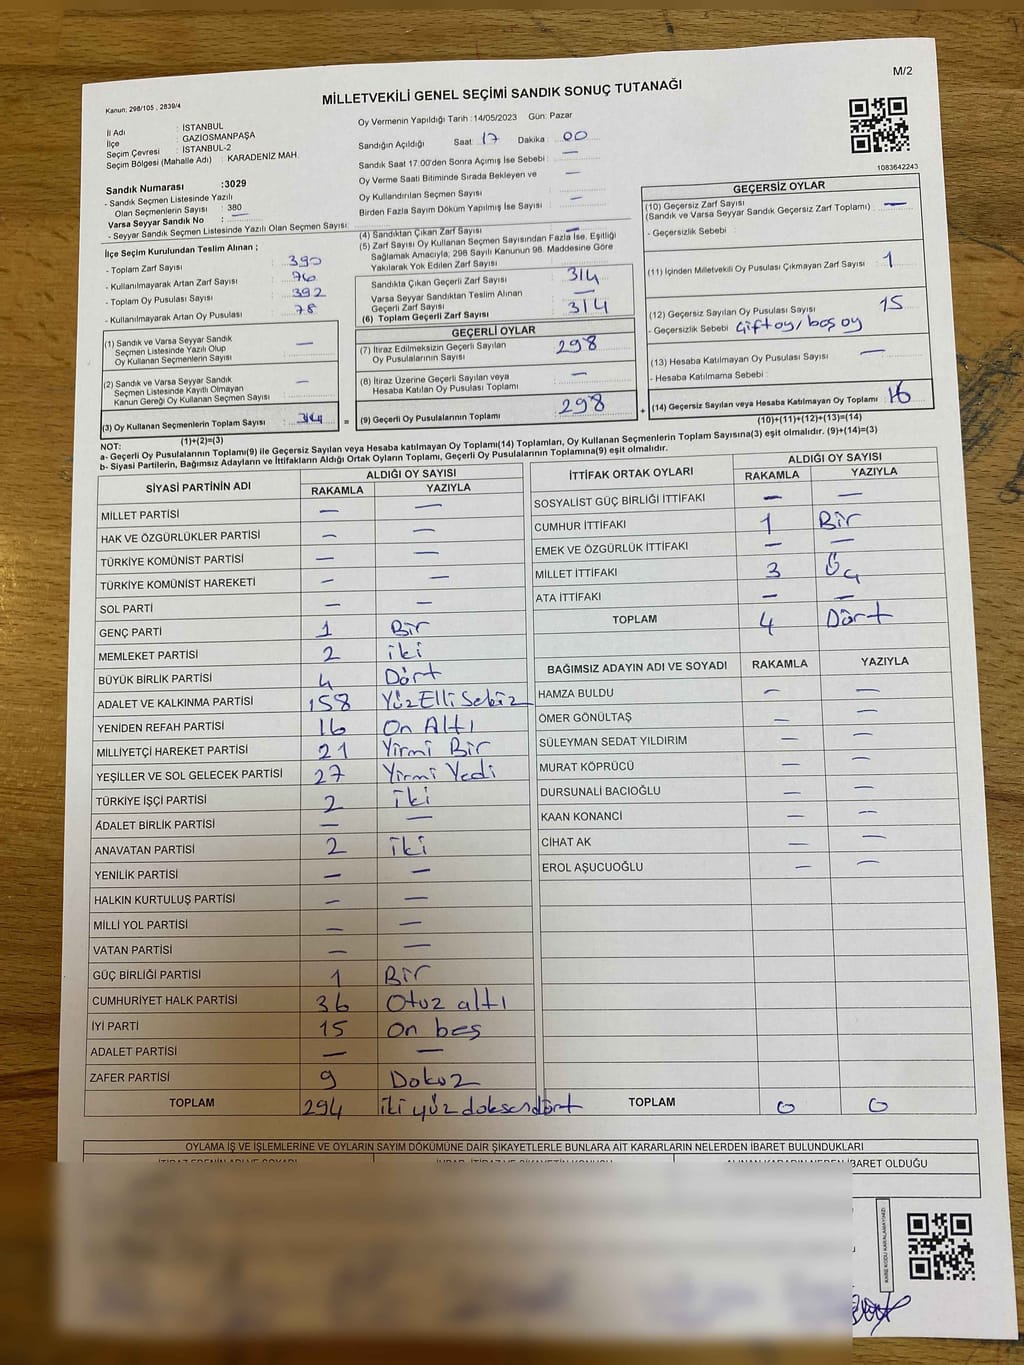 M/2
Kanun: 298/105 , 2839/4
MİLLETVEKİLİ GENEL SEÇİMİ SANDIK SONUÇ TUTANAĞI
İl Adı : İSTANBUL
İlçe : GAZİOSMANPAŞA
Seçim Çevresi : İSTANBUL-2
Seçim Bölgesi (Mahalle Adı) : KARADENİZ MAH.
Sandık Numarası :3029
- Sandık Seçmen Listesinde Yazılı
Olan Seçmenlerin Sayısı : 380
Varsa Seyyar Sandık No : —
- Seyyar Sandık Seçmen Listesinde Yazılı Olan Seçmen Sayısı:
Oy Vermenin Yapıldığı Tarih :14/05/2023 Gün: Pazar
Sandığın Açıldığı Saat 17 Dakika : 00
Sandık Saat 17.00'den Sonra Açımış İse Sebebi : —
Oy Verme Saati Bitiminde Sırada Bekleyen ve —
Oy Kullandırılan Seçmen Sayısı
Birden Fazla Sayım Döküm Yapılmış İse Sayısı : —
1083642243
İlçe Seçim Kurulundan Teslim Alınan ;
- Toplam Zarf Sayısı : 390
- Kullanılmayarak Artan Zarf Sayısı : 76
- Toplam Oy Pusulası Sayısı : 392
- Kullanılmayarak Artan Oy Pusulası : 78
(1) Sandık ve Varsa Seyyar Sandık
Seçmen Listesinde Yazılı Olup
Oy Kullanan Seçmenlerin Sayısı —
(2) Sandık ve Varsa Seyyar Sandık
Seçmen Listesinde Kayıtlı Olmayan
Kanun Gereği Oy Kullanan Seçmen Sayısı —
(3) Oy Kullanan Seçmenlerin Toplam Sayısı 314 =
(1)+(2)=(3)
(4) Sandıktan Çıkan Zarf Sayısı : —
(5) Zarf Sayısı Oy Kullanan Seçmen Sayısından Fazla İse, Eşitliği
Sağlamak Amacıyla; 298 Sayılı Kanunun 98. Maddesine Göre
Yakılarak Yok Edilen Zarf Sayısı :
Sandıkta Çıkan Geçerli Zarf Sayısı : 314
Varsa Seyyar Sandıktan Teslim Alınan
Geçerli Zarf Sayısı : —
(6) Toplam Geçerli Zarf Sayısı : 314
GEÇERLİ OYLAR
(7) İtiraz Edilmeksizin Geçerli Sayılan
Oy Pusulalarının Sayısı 298
(8) İtiraz Üzerine Geçerli Sayılan veya
Hesaba Katılan Oy Pusulası Toplamı —
(9) Geçerli Oy Pusulalarının Toplamı 298 +
GEÇERSİZ OYLAR
(10) Geçersiz Zarf Sayısı —
(Sandık ve Varsa Seyyar Sandık Geçersiz Zarf Toplamı)
- Geçersizlik Sebebi :
(11) İçinden Milletvekili Oy Pusulası Çıkmayan Zarf Sayısı 1
(12) Geçersiz Sayılan Oy Pusulası Sayısı 15
- Geçersizlik Sebebi Çift oy, boş oy
(13) Hesaba Katılmayan Oy Pusulası Sayısı —
- Hesaba Katılmama Sebebi :
(14) Geçersiz Sayılan veya Hesaba Katılmayan Oy Toplamı 16
(10)+(11)+(12)+(13)=(14)
NOT:
a- Geçerli Oy Pusulalarının Toplamı(9) ile Geçersiz Sayılan veya Hesaba Katılmayan Oy Toplamı(14) Toplamları, Oy Kullanan Seçmenlerin Toplam Sayısına(3) eşit olmalıdır. (9)+(14)=(3)
b- Siyasi Partilerin, Bağımsız Adayların ve İttifakların Aldığı Ortak Oyların Toplamı, Geçerli Oy Pusulalarının Toplamına(9) eşit olmalıdır.
SİYASİ PARTİNİN ADI ALDIĞI OY SAYISI
RAKAMLA YAZIYLA
MİLLET PARTİSİ — —
HAK VE ÖZGÜRLÜKLER PARTİSİ — —
TÜRKİYE KOMÜNİST PARTİSİ — —
TÜRKİYE KOMÜNİST HAREKETİ — —
SOL PARTİ — —
GENÇ PARTİ 1 Bir
MEMLEKET PARTİSİ 2 iki
BÜYÜK BİRLİK PARTİSİ 4 Dört
ADALET VE KALKINMA PARTİSİ 158 YüzElliSekiz
YENİDEN REFAH PARTİSİ 16 On Altı
MİLLİYETÇİ HAREKET PARTİSİ 21 Yirmi Bir
YEŞİLLER VE SOL GELECEK PARTİSİ 27 Yirmi Yedi
TÜRKİYE İŞÇİ PARTİSİ 2 iki
ADALET BİRLİK PARTİSİ — —
ANAVATAN PARTİSİ 2 iki
YENİLİK PARTİSİ — —
HALKIN KURTULUŞ PARTİSİ — —
MİLLİ YOL PARTİSİ — —
VATAN PARTİSİ — —
GÜÇ BİRLİĞİ PARTİSİ 1 Bir
CUMHURİYET HALK PARTİSİ 36 Otuz altı
İYİ PARTİ 15 On beş
ADALET PARTİSİ — —
ZAFER PARTİSİ 9 Dokuz
TOPLAM 294 iki yüz doksandört
İTTİFAK ORTAK OYLARI ALDIĞI OY SAYISI
RAKAMLA YAZIYLA
SOSYALİST GÜÇ BİRLİĞİ İTTİFAKI — —
CUMHUR İTTİFAKI 1 Bir
EMEK VE ÖZGÜRLÜK İTTİFAKI — —
MİLLET İTTİFAKI 3 Üç
ATA İTTİFAKI — —
TOPLAM 4 Dört
BAĞIMSIZ ADAYIN ADI VE SOYADI RAKAMLA YAZIYLA
HAMZA BULDU — —
ÖMER GÖNÜLTAŞ — —
SÜLEYMAN SEDAT YILDIRIM — —
MURAT KÖPRÜCÜ — —
DURSUNALİ BACIOĞLU — —
KAAN KONANCİ — —
CİHAT AK — —
EROL AŞUCUOĞLU — —
TOPLAM 0 0
OYLAMA İŞ VE İŞLEMLERİNE VE OYLARIN SAYIM DÖKÜMÜNE DAİR ŞİKAYETLERLE BUNLARA AİT KARARLARIN NELERDEN İBARET BULUNDUKLARI
ALINAN KARARIN NEDEN İBARET OLDUĞU
KARE KODU KARALAMAYINIZ!